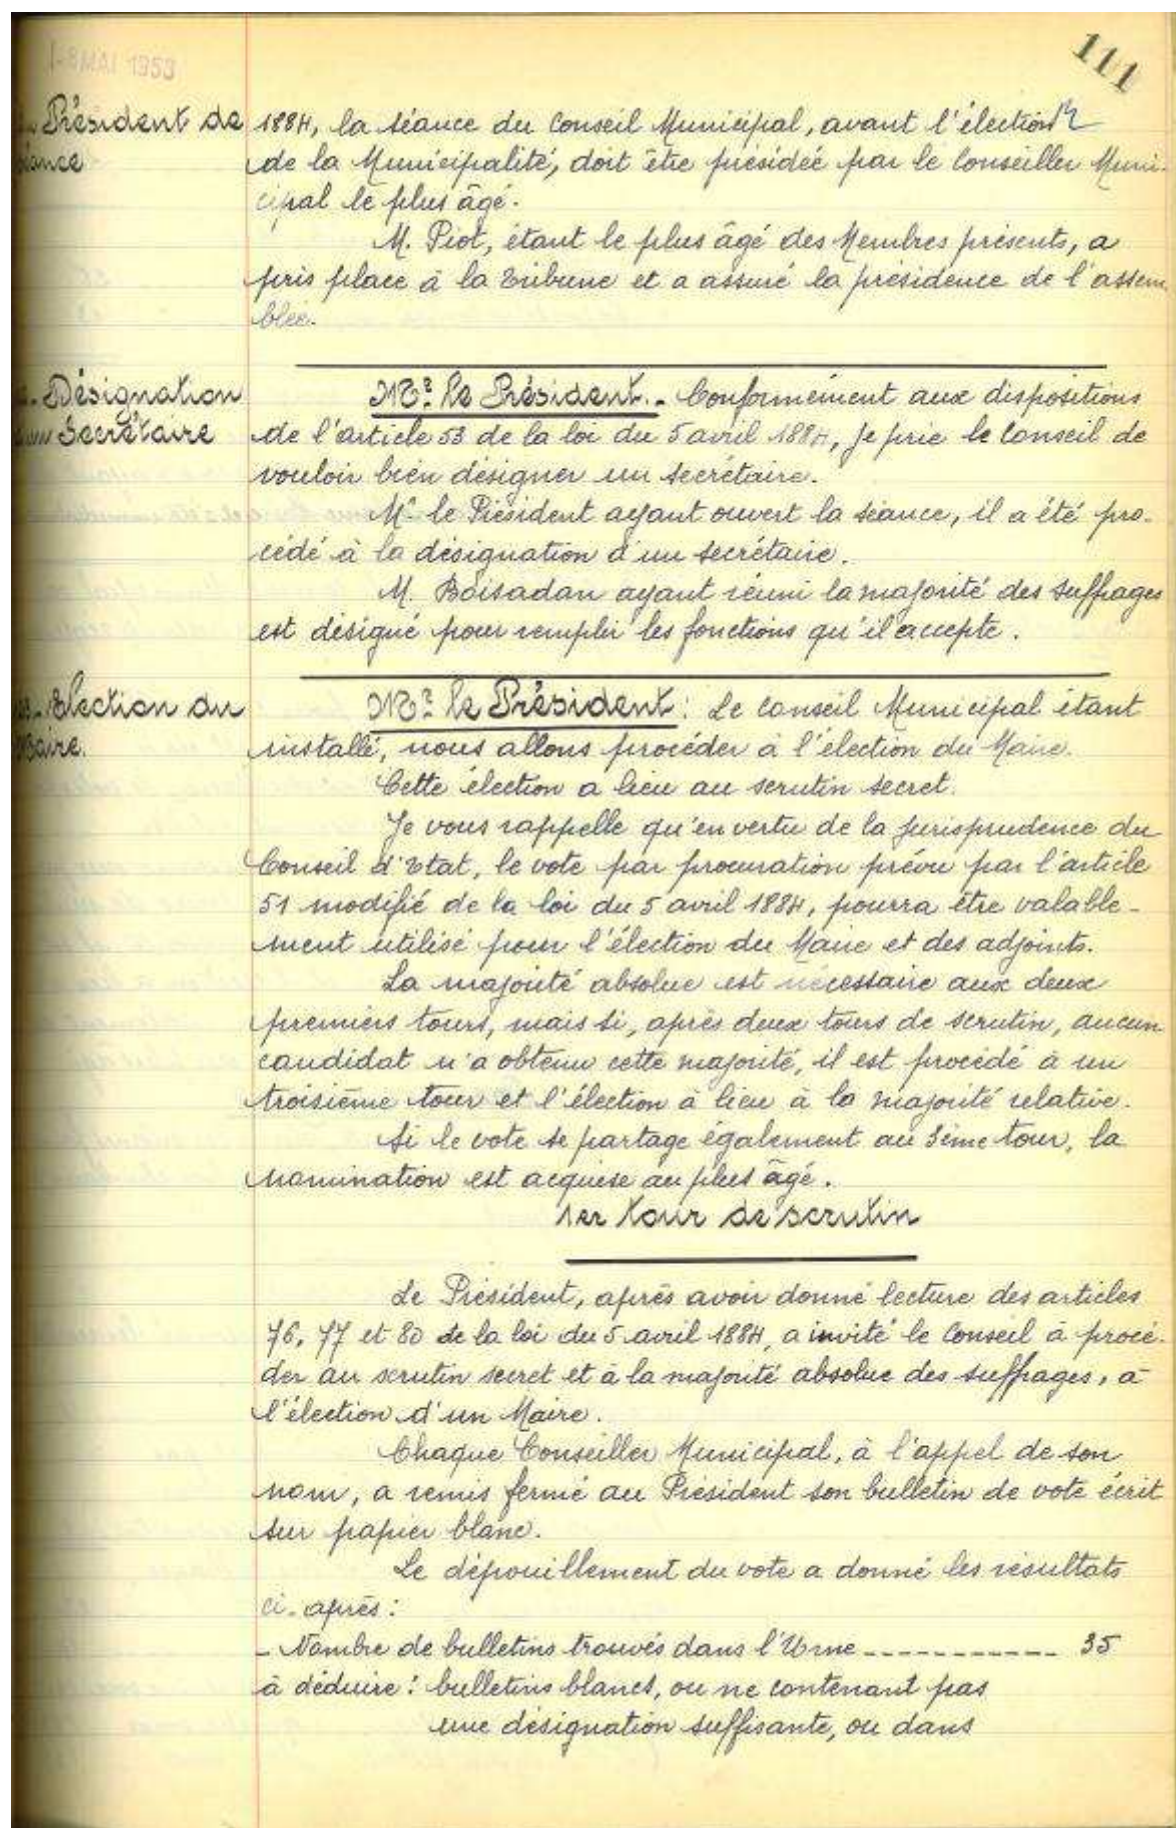 - 8 MAI 1953
111
Président de
séance
1884, la séance du Conseil Municipal, avant l'élection
de la Municipalité, doit être présidée par le Conseiller Muni-
cipal le plus âgé.
M. Piot, étant le plus âgé des Membres présents, a
pris place à la tribune et a assuré la présidence de l'assem
blée.
- Désignation
d'un Secrétaire
Mr. le Président.- Conformément aux dispositions
de l'article 53 de la loi du 5 avril 1884, je prie le Conseil de
vouloir bien désigner un secrétaire.
Mr le Président ayant ouvert la séance, il a été pro-
cédé à la désignation d'un secrétaire.
M. Boisadan ayant réuni la majorité des suffrages
est désigné pour remplir les fonctions qu'il accepte.
- Election du
Maire.
Mr. le Président : Le Conseil Municipal étant
installé, nous allons procéder à l'élection du Maire.
Cette élection a lieu au scrutin secret.
Je vous rappelle qu'en vertu de la jurisprudence du
Conseil d'Etat, le vote par procuration prévu par l'article
51 modifié de la loi du 5 avril 1884, pourra être valable-
ment utilisé pour l'élection du Maire et des adjoints.
La majorité absolue est nécessaire aux deux
premiers tours, mais si, après deux tours de scrutin, aucun
candidat n'a obtenu cette majorité, il est procédé à un
troisième tour et l'élection à lieu à la majorité relative.
Si le vote se partage également au 3ème tour, la
nomination est acquise au plus âgé.
1er tour de scrutin
Le Président, après avoir donné lecture des articles
76, 77 et 80 de la loi du 5 avril 1884, a invité le Conseil à procé-
der au scrutin secret et à la majorité absolue des suffrages, à
l'élection d'un Maire.
Chaque Conseiller Municipal, à l'appel de son
nom, a remis fermé au Président son bulletin de vote écrit
sur papier blanc.
Le dépouillement du vote a donné les résultats
ci-après :
- Nombre de bulletins trouvés dans l'Urne ----------- 35
à déduire : bulletins blancs, ou ne contenant pas
une désignation suffisante, ou dans